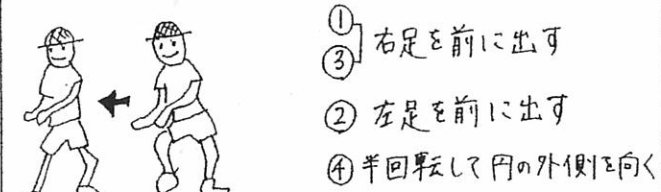 ①
③ 右足を前に出す
② 左足を前に出す
④ 半回転して円の外側を向く